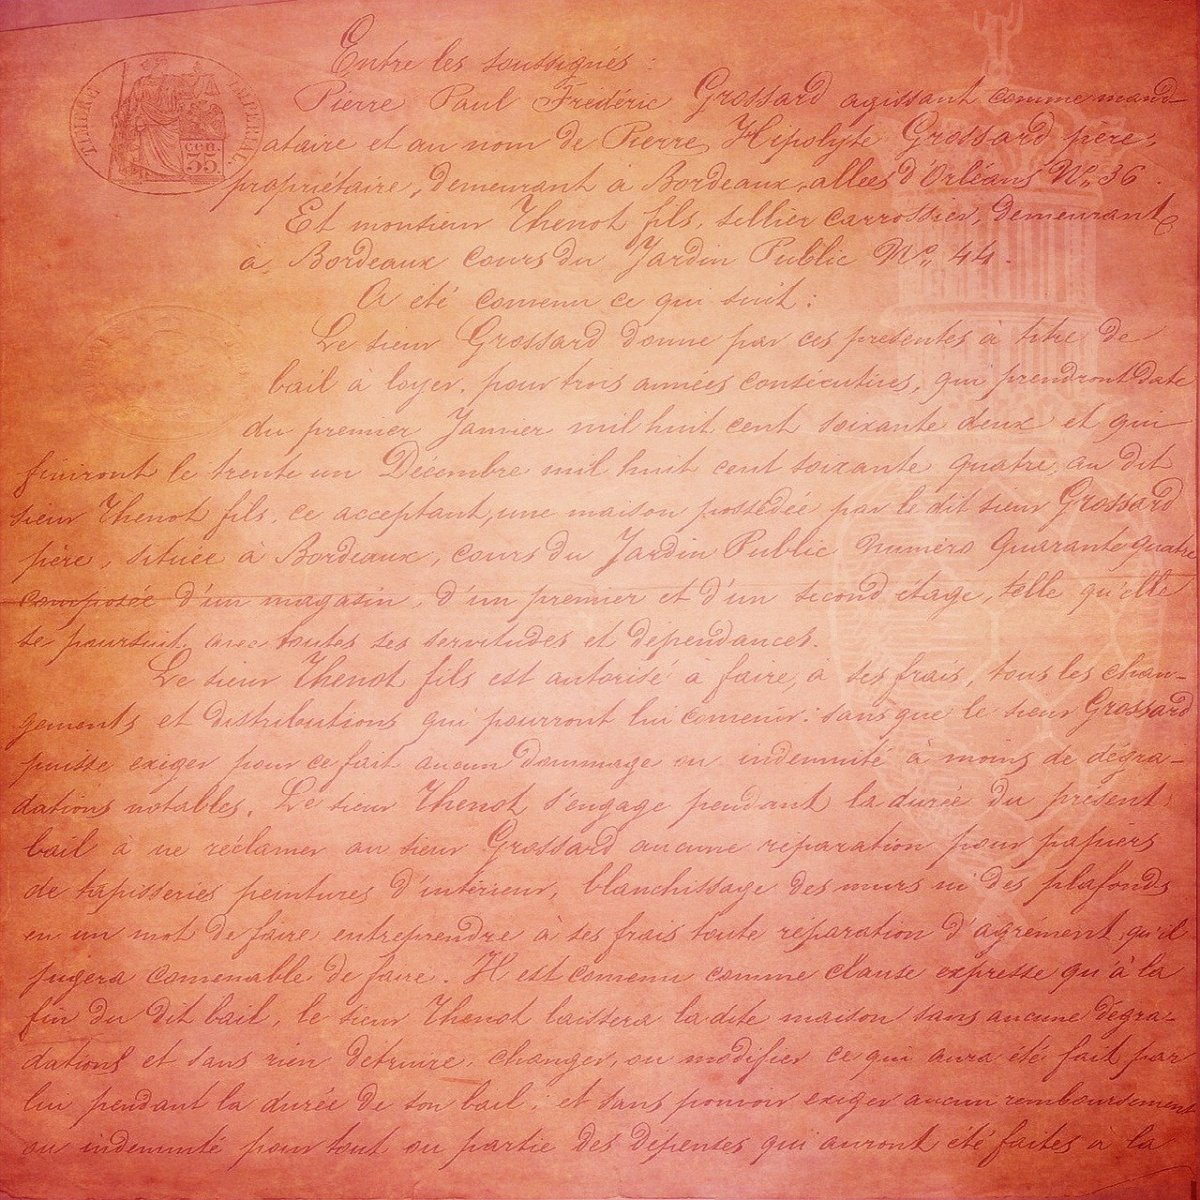 Entre les soussignés :
Pierre Paul Frédéric Grossard agissant comme mand-
TIMBRE IMPERIAL
CEN. 55
ataire et au nom de Pierre Hipolyte Grossard père,
propriétaire, demeurant a Bordeaux, allées d'Orléans No. 36.
Et monsieur Thenot fils, sellier carrossier, demeurant
à Bordeaux cours du Jardin Public No. 44.
A été convenu ce qui suit :
Le sieur Grossard donne par ces présentes à titre de
bail à loyer, pour trois années consécutives, qui prendront date
du premier Janvier mil huit cent soixante deux et qui
finiront le trente un Décembre mil huit cent soixante quatre, au dit
sieur Thenot fils, ce acceptant, une maison possédée par le dit sieur Grossard
père, située à Bordeaux, cours du Jardin Public numéro quarante quatre
composée d'un magasin, d'un premier et d'un second étage, telle qu'elle
se poursuit, avec toutes ses servitudes et dépendances.
Le sieur Thenot fils est autorisé à faire, à ses frais, tous les chan-
gements et distributions qui pourront lui convenir : sans que le sieur Grossard
puisse exiger pour ce fait aucun dommage ou indemnité à moins de dégra-
dations notables. Le sieur Thenot s'engage pendant la durée du présent
bail à ne réclamer au sieur Grossard aucune réparation pour papiers
de tapisseries peintures d'intérieur, blanchissage des murs ni des plafonds
en un mot de faire entreprendre à ses frais toute réparation d'agrément qu'il
jugera convenable de faire. Il est convenu comme clause expresse qu'à la
fin du dit bail, le sieur Thenot laissera la dite maison sans aucune dégra-
dations et sans rien détruire, changer, ou modifier ce qui aura été fait par
lui pendant la durée de son bail ; et sans pouvoir exiger aucun remboursement
ou indemnité pour tout ou partie des dépenses qui auront été faites à la